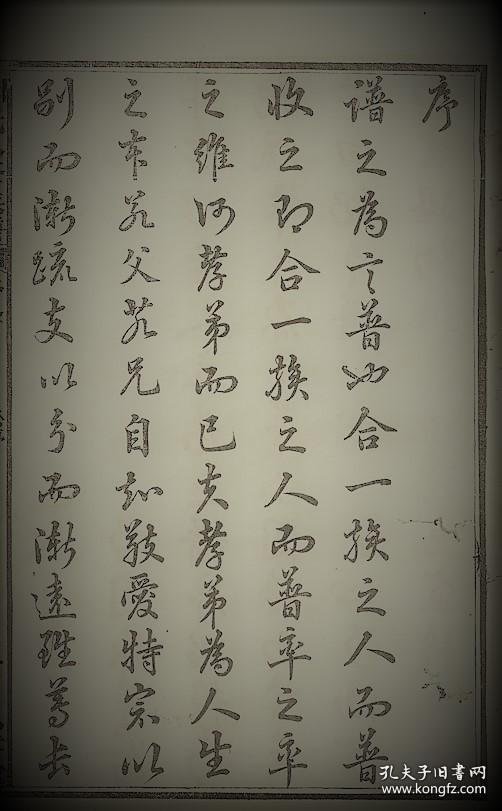 序
譜之為言普也合一族之人而普
收之即合一族之人而普率之率
之維何孝弟而已夫孝弟為人生
之本若父若兄自知敬愛特宗以
别而漸疏支以分而漸遠雖尊長
孔夫子旧书网
www.kongfz.com